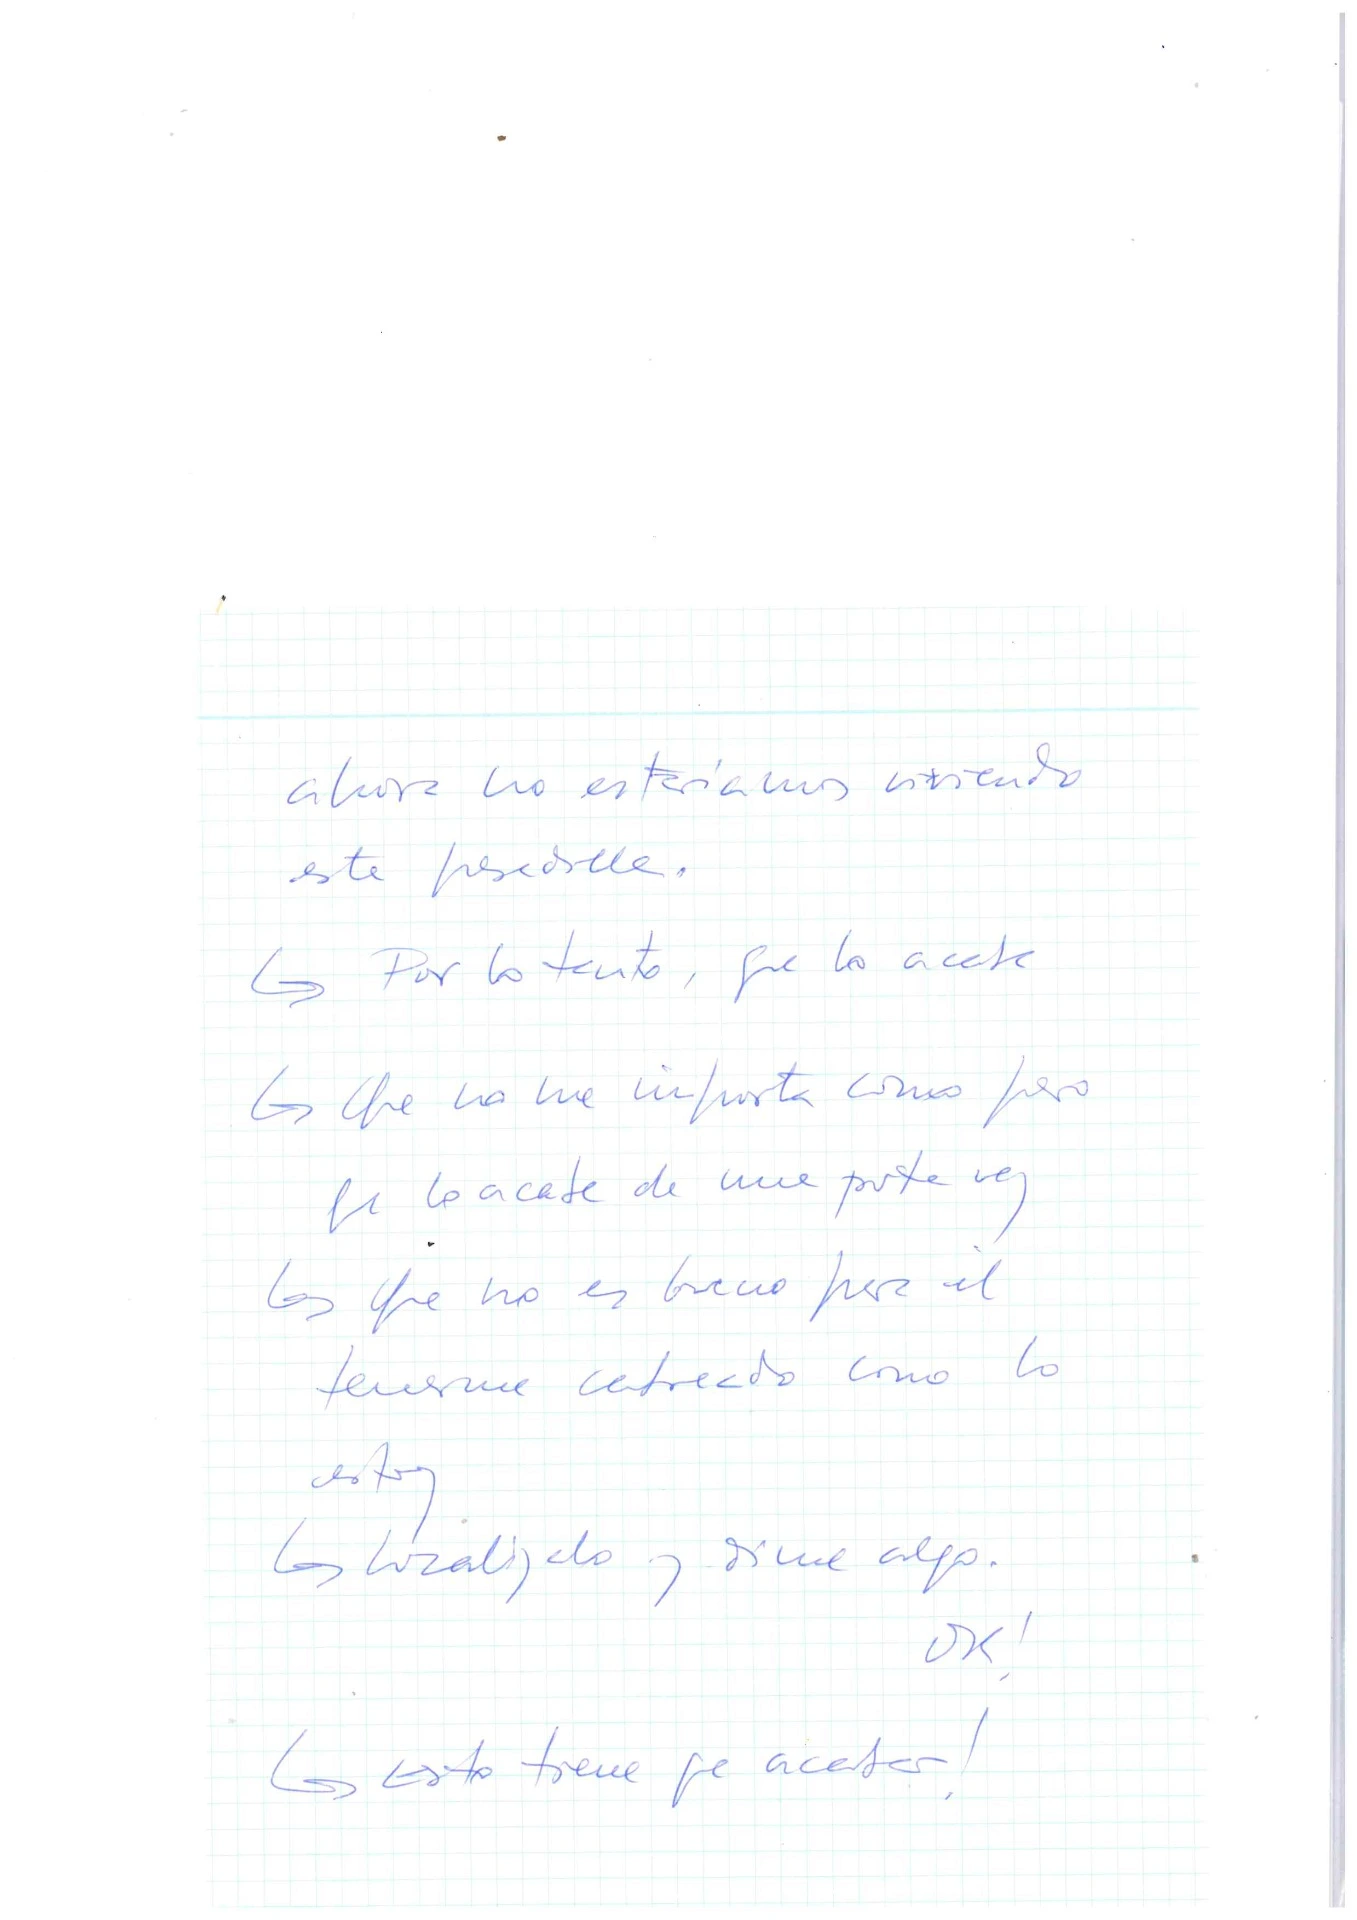 ahora no estaríamos viviendo
esta pesadilla.
↳ Por lo tanto, que lo acabe
↳ Que no me importa como pero
que lo acabe de una puta vez
↳ Que no es bueno para él
tenerme cabreado como lo
estoy
↳ Localízalo y dime algo.
OK!
↳ esto tiene que acabar!